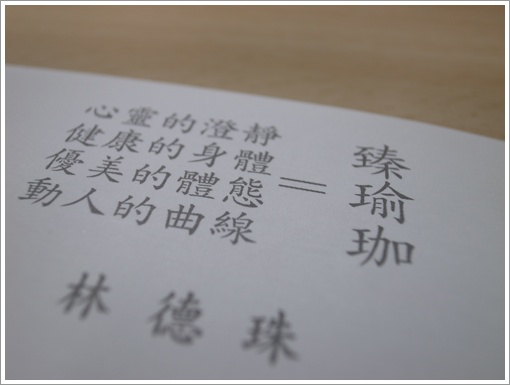 心靈的澄靜
健康的身體
優美的體態
動人的曲線
=
臻瑜珈
林德珠